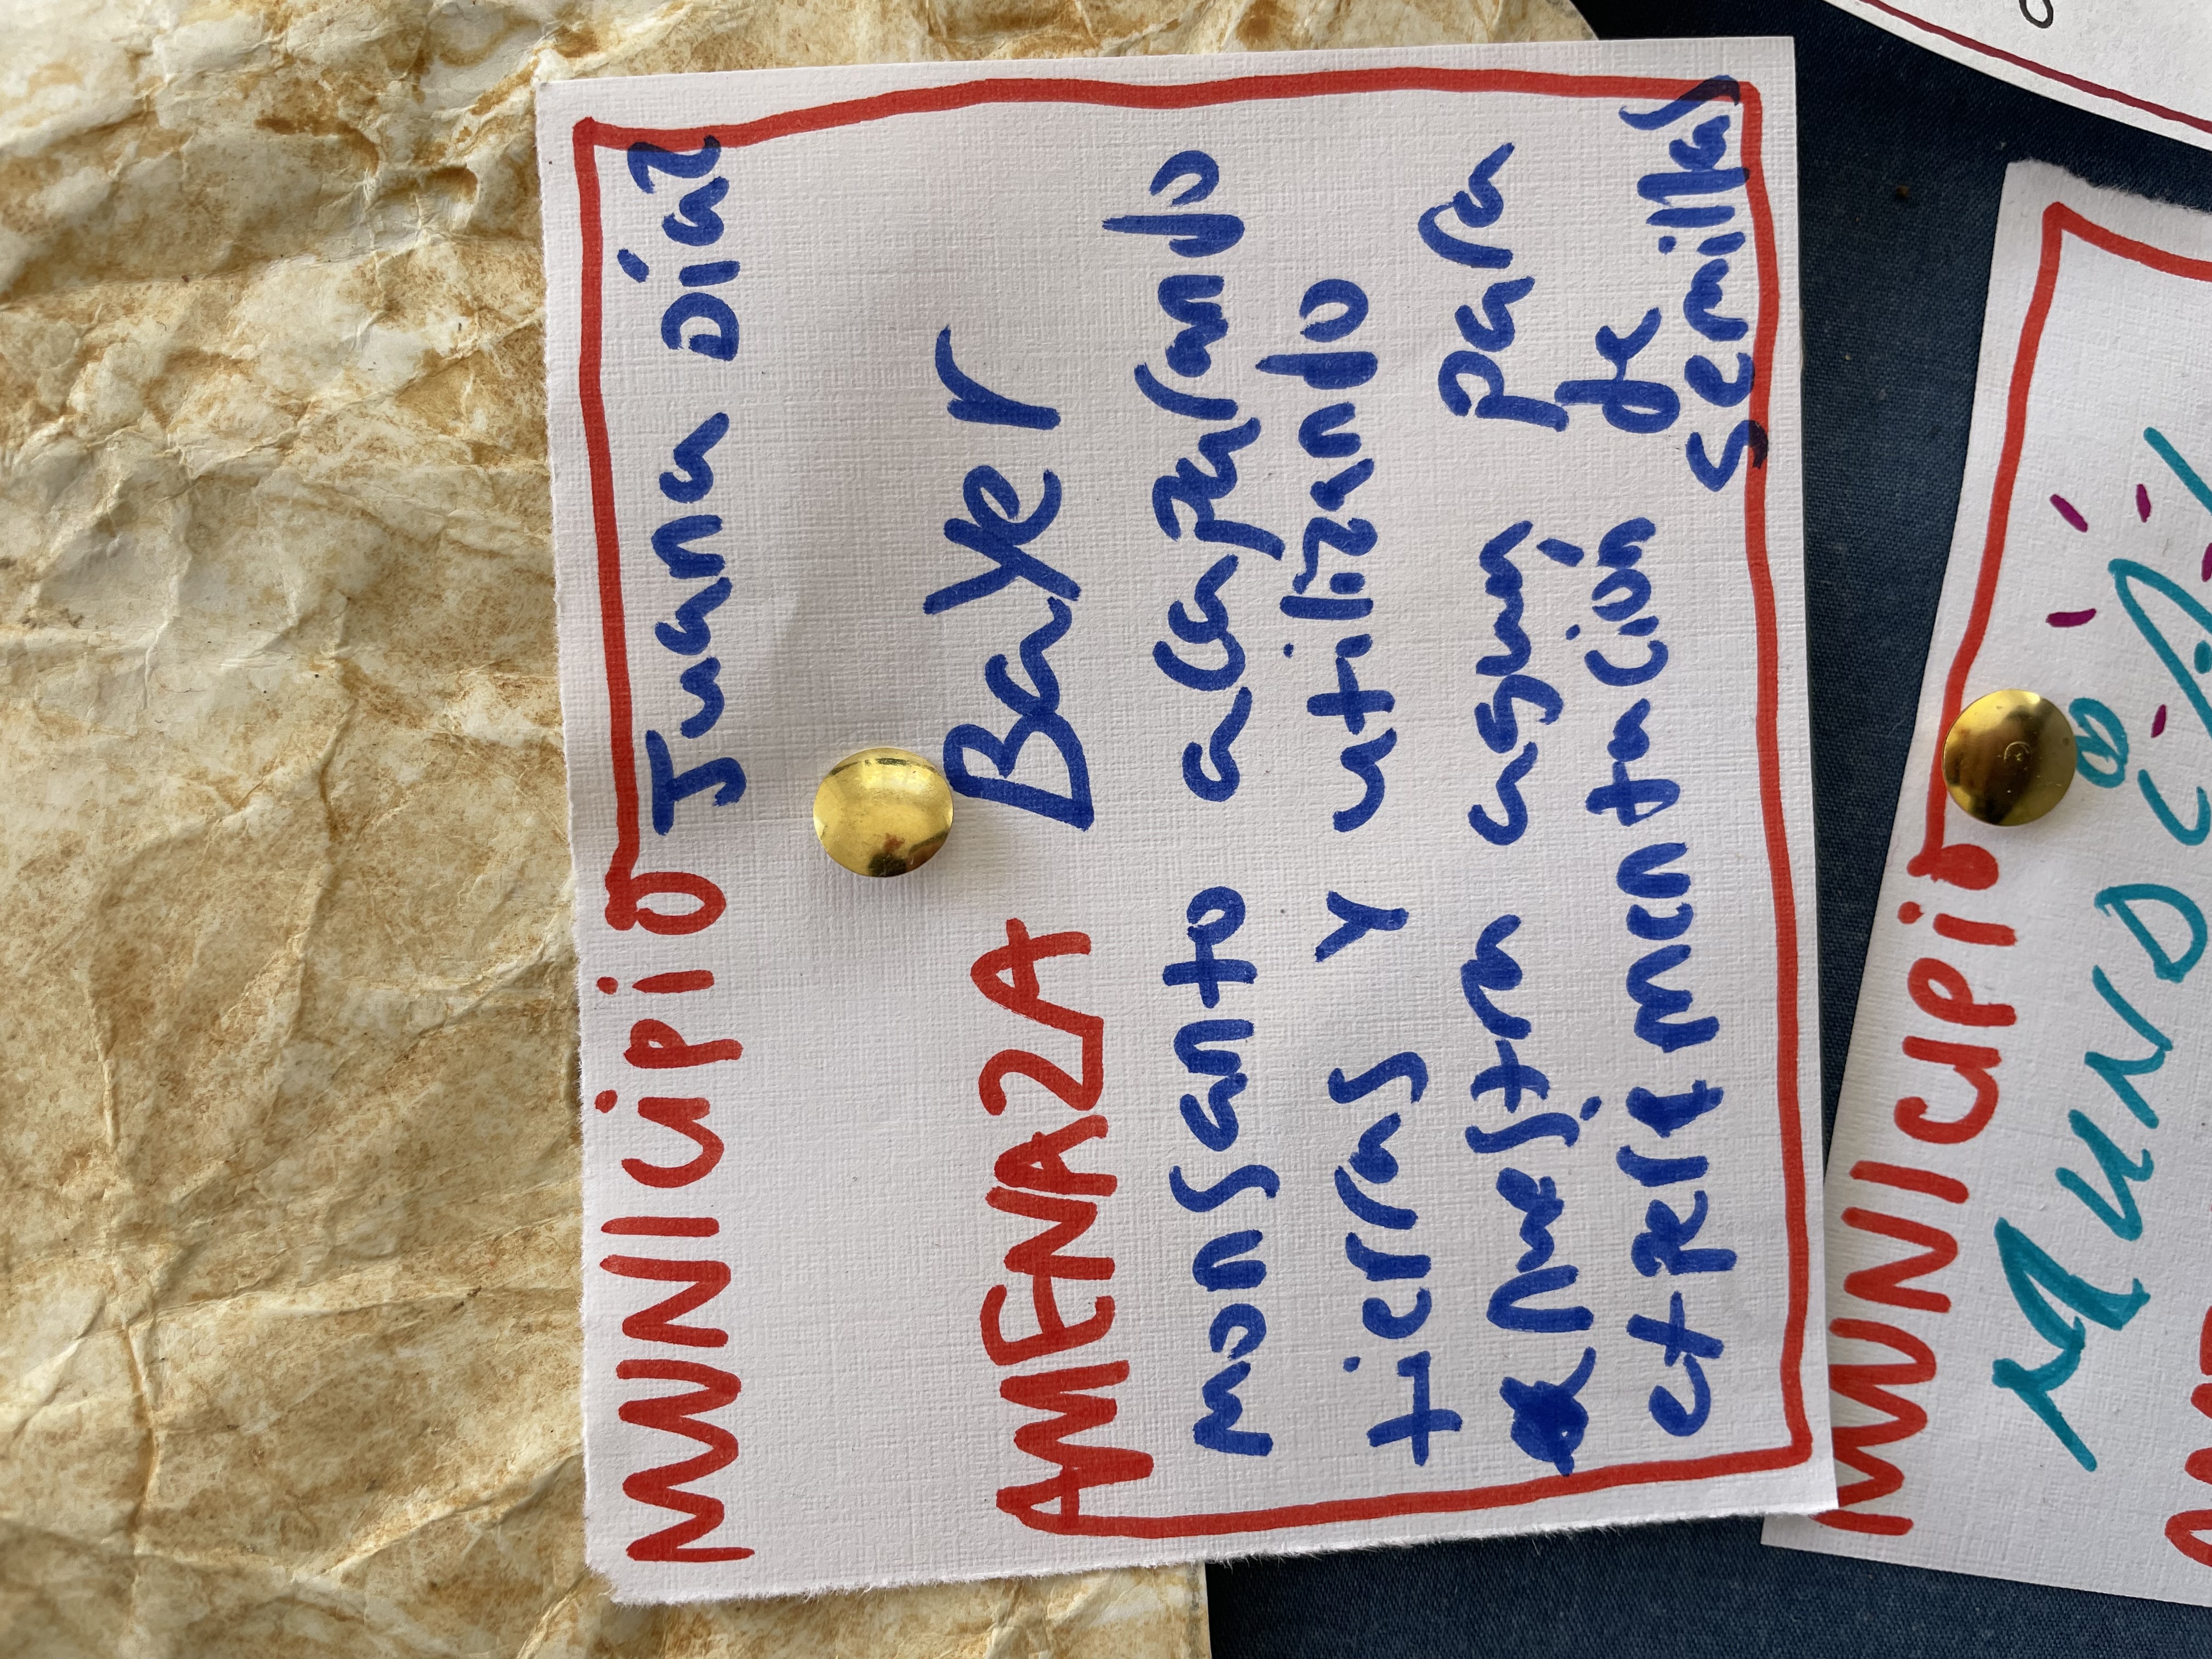 MUNICIPIO Juana Díaz
AMENAZA Bayer
monsanto acaparando
tierras y utilizando
nuestra agua para
experimentación de
semillas
MUNICIPIO